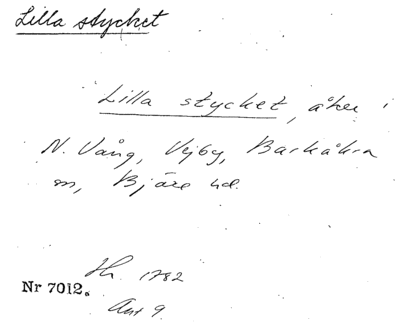 Lilla stycket
Lilla stycket, åker i
N. Vång, Vejby, Barkåkra
sn, Bjäre hd.
Hr. 1782
Nr 7012.
Akt 9.